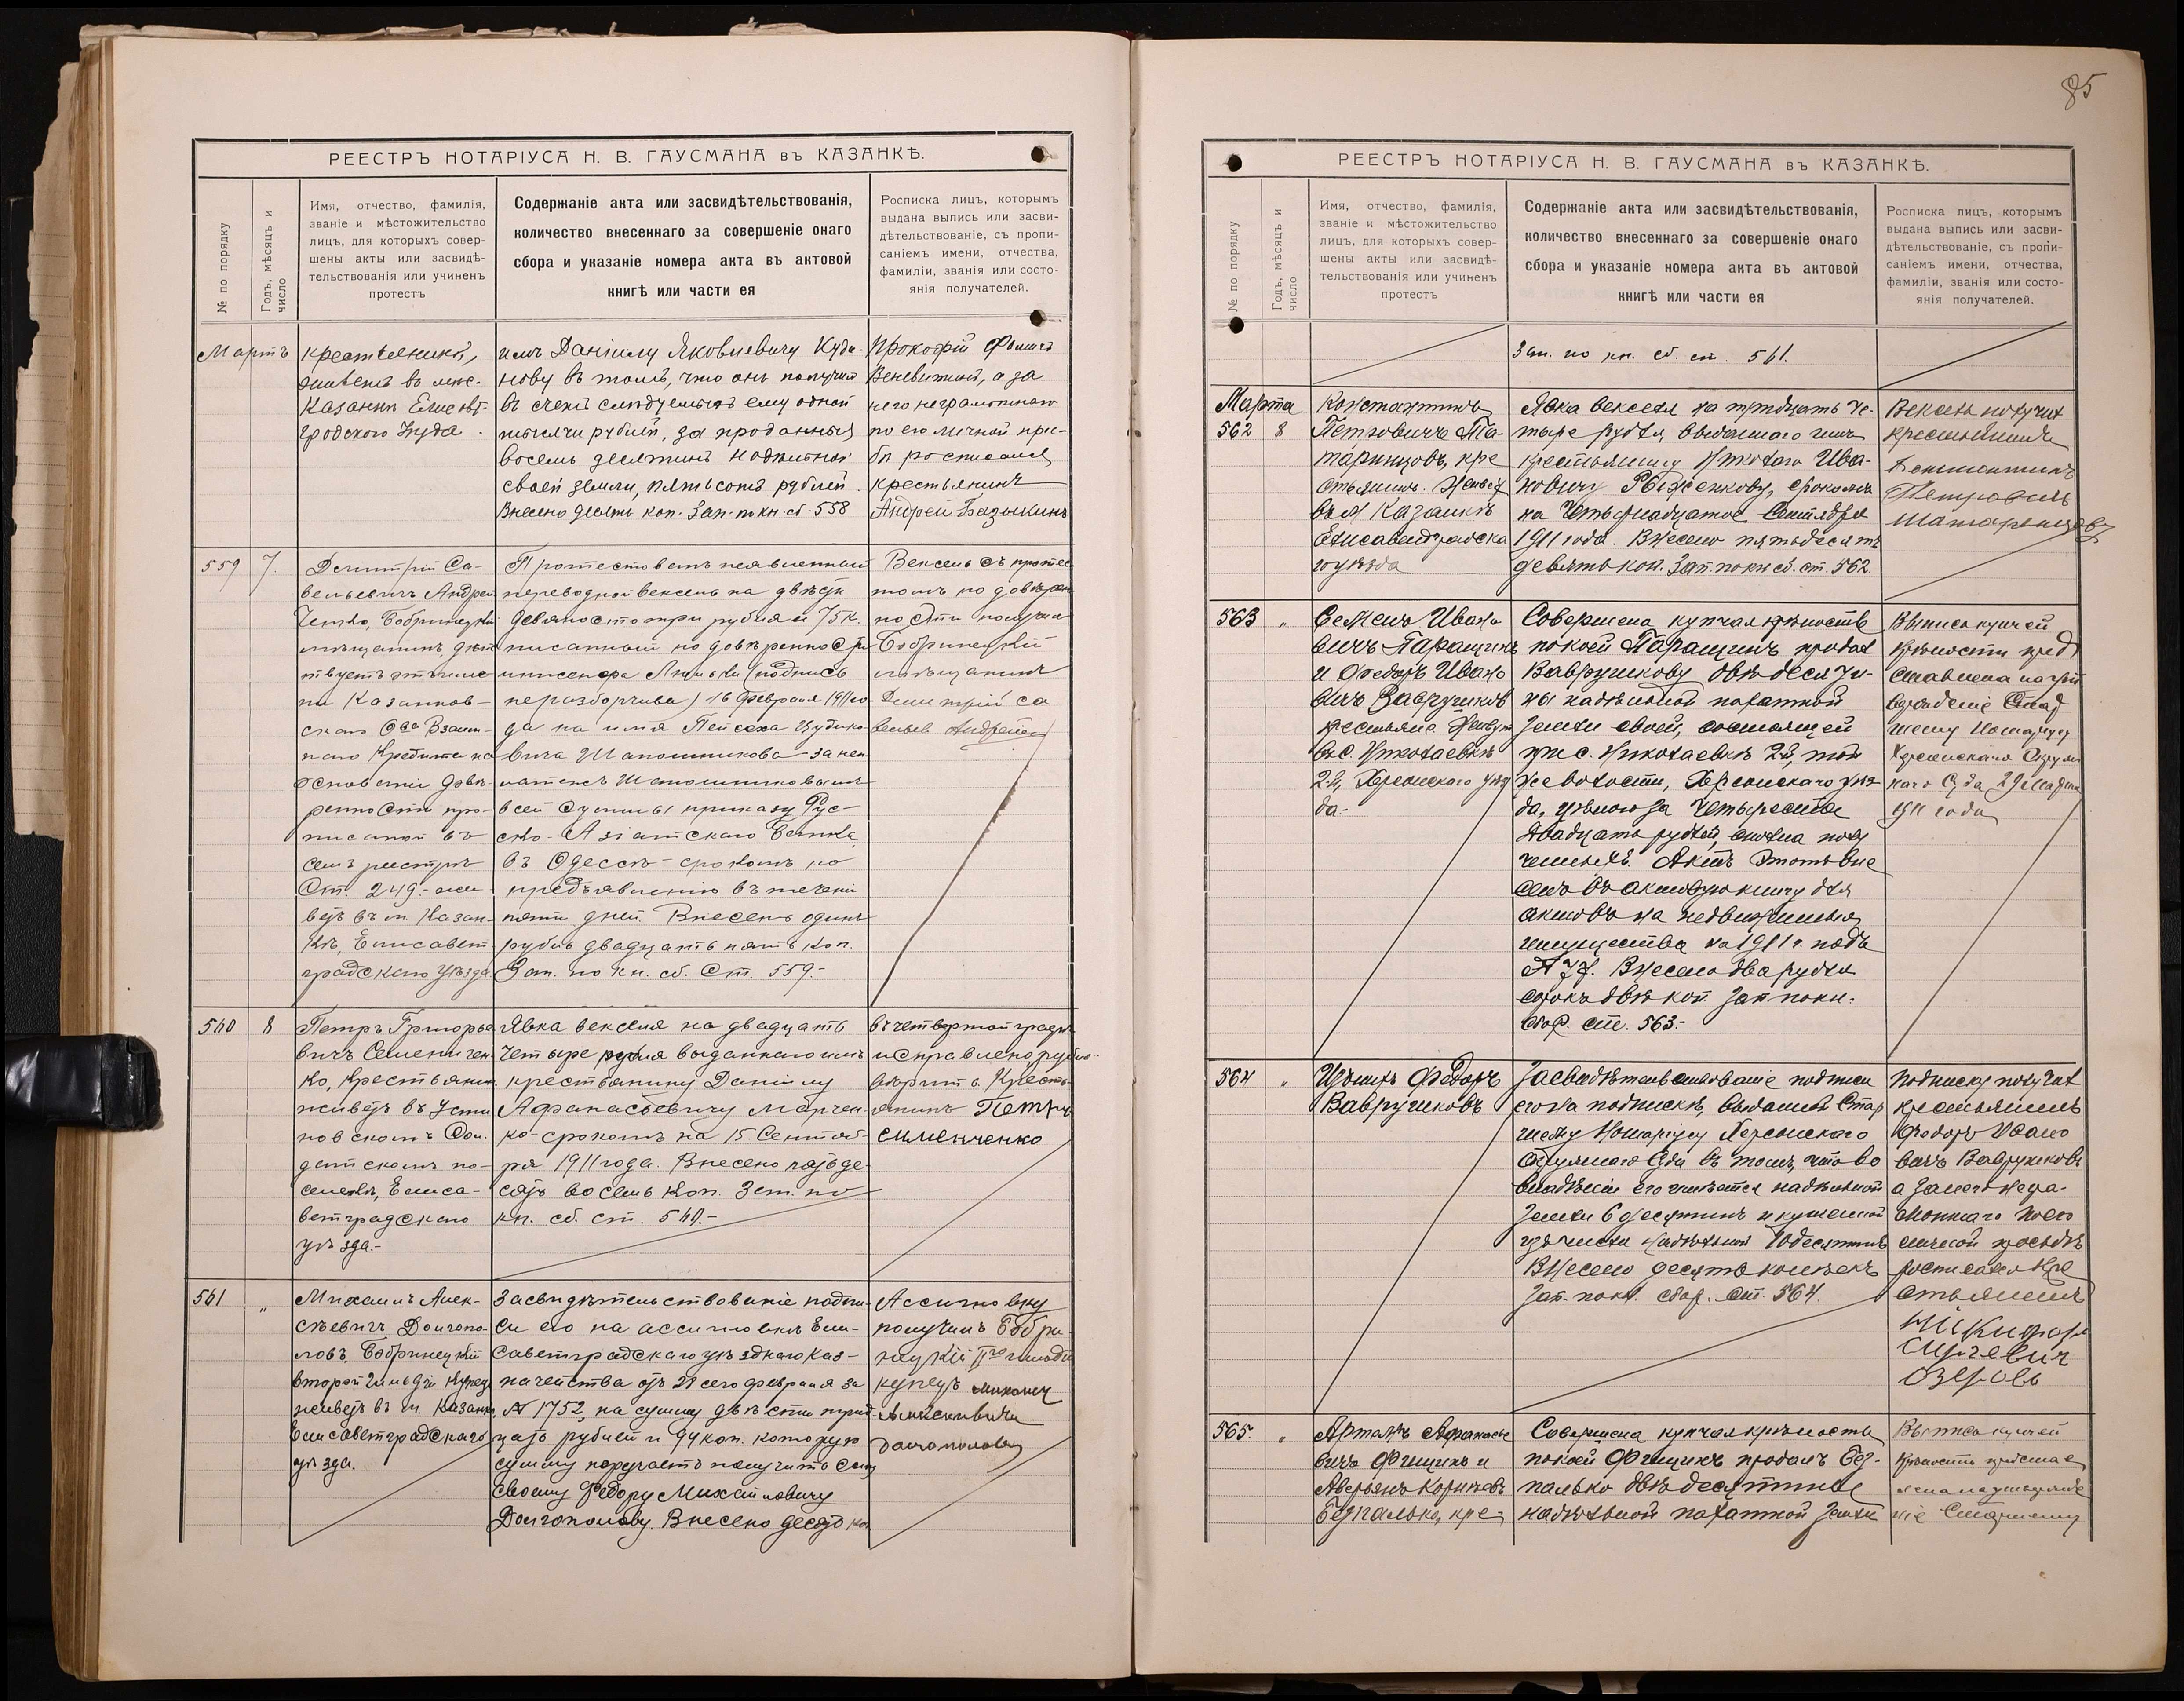 РЕЕСТРЪ НОТАРІУСА Н. В. ГАУСМАНА въ КАЗАНКѢ.
№ по порядку
Годъ, мѣсяцъ и
число
Имя, отчество, фамилія,
званіе и мѣстожительство
лицъ, для которыхъ совер-
шены акты или засвидѣ-
тельствованія или учиненъ
протестъ
Содержаніе акта или засвидѣтельствованія,
количество внесеннаго за совершеніе онаго
сбора и указаніе номера акта въ актовой
книгѣ или части ея
Росписка лицъ, которымъ
выдана выпись или засви-
дѣтельствованіе, съ пропи-
саніемъ имени, отчества,
фамиліи, званія или состо-
янія получателей.
Мартъ
живетъ въ мѣс.
Казанкѣ Елисавет-
градского уѣзда.
имъ Даніилу Яковлевичу Куда-
нову въ томъ, что онъ получилъ
въ счетъ слѣдуемыхъ ему одной
тысячи рублей, за проданныя
восемь десятинъ надѣльной
своей земли, пятьсотъ рублей.
Внесено десять коп. Зап. по кн. сб. 558
Прокофій Фомичъ
Веневитинъ, а за
него неграмотнаго
по его личной прось-
бѣ росписался
крестьянинъ
Андрей
559 7.
Дмитрій Са-
вельевичъ Андрей-
ченко, Бобринецкій
мѣщанинъ, дѣй-
ствуетъ отъ име-
ни Казанков-
скаго Ова Взаим-
наго Кредита на
основаніи довѣ-
ренности про-
писанной въ
семъ реестрѣ
Ст. 249. жи-
ветъ въ м. Казан-
кѣ, Елисавет-
градскаго уѣзда.
Протестованъ неявленный
переводной вексель на двѣсти
девяносто три рубля и 75 к.
писанный по довѣренности
(подпись
неразборчива) 16 февраля 1911 го-
да на имя Пейсаха
Шапошникова - за неп-
латежъ Шапошниковымъ
всей суммы приказу Рус-
ско-Азіатскаго Банка,
въ Одессѣ - срокомъ по
предъявленію въ теченіи
пяти дней. Внесенъ одинъ
рубль двадцать пять коп.
Зап. по кн. сб. Ст. 559.-
Вексель съ протес-
томъ по довѣрен-
ности получилъ
Бобринецкій
мѣщанинъ
Дмитрій Са
вельев
560 8
Петръ Григорье-
вичъ Семенчен-
ко, крестьянинъ
живетъ въ Усти-
новскомъ Сол-
датскомъ по-
селеніи, Елиса-
ветградскаго
уѣзда.-
Явка векселя на двадцать
четыре рубля выданнаго имъ
крестьянину Даніилу
Афанасьевичу Марчен-
ко - срокомъ на 15 Сентяб-
ря 1911 года. Внесено пятьде-
сятъ восемь коп. Зап. по
кн. сб. ст. 560.-
въ четвертой графѣ
исправлено: рубля
вѣрить. Кресть-
янинъ Петръ
Сименченко
561 „
Михаилъ Алек-
сѣевичъ Долгопо-
ловъ, Бобринецкій
второй гильдіи купецъ
живетъ въ м. Казанкѣ,
Елисаветградскаго
уѣзда.
Засвидѣтельствованіе подпи-
си его на ассигновкѣ Ели-
саветградскаго уѣзднаго Каз-
начейства отъ 28 сего февраля за
№ 1752, на сумму двѣсти трид-
цать рублей и 94 коп. которую
сумму поручаетъ получить сыну
своему Федору Михайловичу
Долгополову. Внесено десять коп.
Ассигновку
получилъ Бобри-
нецкій IIой гильдіи
купецъ Михаилъ
Алексѣевичъ
Долгополовъ
85
РЕЕСТРЪ НОТАРІУСА Н. В. ГАУСМАНА въ КАЗАНКѢ.
№ по порядку
Годъ, мѣсяцъ и
число
Имя, отчество, фамилія,
званіе и мѣстожительство
лицъ, для которыхъ совер-
шены акты или засвидѣ-
тельствованія или учиненъ
протестъ
Содержаніе акта или засвидѣтельствованія,
количество внесеннаго за совершеніе онаго
сбора и указаніе номера акта въ актовой
книгѣ или части ея
Росписка лицъ, которымъ
выдана выпись или засви-
дѣтельствованіе, съ пропи-
саніемъ имени, отчества,
фамиліи, званія или состо-
янія получателей.
Зап. по кн. сб. ст. 561.
Марта
562 8
Константинъ
Петровичъ Та-
таринцовъ, кре
стьянинъ. Живетъ
въ м. Казанкѣ
Елисаветградска
го уѣзда
Явка векселя на тридцать че-
тыре рубля выданнаго имъ
крестьянину Николаю Ива-
новичу Рыженкову, срокомъ
на четырнадцатое Сентября
1911 года. Внесено пятьдесятъ
девять коп. Зап. по кн. сб. ст. 562.
Вексель получилъ
крестьянинъ
Константинъ
Петровичъ
Татаринцовъ
563 „
Семенъ Ивано
вичъ Паращинъ
и Федоръ Ивано
вичъ Вавружиковъ
крестьяне. Живутъ
въ с. Николаевкѣ
2й, Херсонскаго уѣз
да.-
Совершена купчая крѣпость
по коей Паращинъ продалъ
Вавружикову двѣ десяти-
ны надѣльной пахатной
земли своей, состоящей
при с. Николаевкѣ 2й, той
же волости, Херсонскаго уѣз-
да, цѣною за четыреста
двадцать рублей, сполна полу
ченныхъ. Актъ этотъ вне
сенъ въ актовую книгу для
актовъ на недвижимыя
имущества на 1911 г. подъ
№ 77. Внесено два рубля
сорокъ двѣ коп. Зап. по кн.
сбор. ст. 563.-
Выпись купчей
крѣпости пред
ставлена на утв
вержденіе Стар
шему Нотаріусу
Херсонскаго Окруж
наго Суда 29 Марта
1911 года
564 „
Федоръ
Вавружиковъ
Засвидѣтельствованіе подписи
его на подпискѣ, выданной Стар
шему Нотаріусу Херсонскаго
Окружнаго Суда въ томъ, что во
владѣніи его имѣется надѣльной
земли 6 десятинъ и купленной
изъ числа надѣльной 10 десятинъ
Внесено десять копѣекъ
Зап. по кн. сбор. ст. 564.
Подписку получилъ
крестьянинъ
Федоръ Ивано
вичъ Вавружиковъ
а за него негра-
мотнаго по его
личной просьбѣ
росписался кре
стьянинъ
Никифоръ
Сергѣевич
Озеровъ
565. „
Артемъ Афанасье
вичъ Фищикъ и
Аверьянъ
Безпалько, кре-
Совершена купчая крѣпость
по коей Фищикъ продалъ Без-
палько двѣ десятины
надѣльной пахатной земли
Выпись купчей
крѣпости представ
лена на утвержде
ніе Старшему